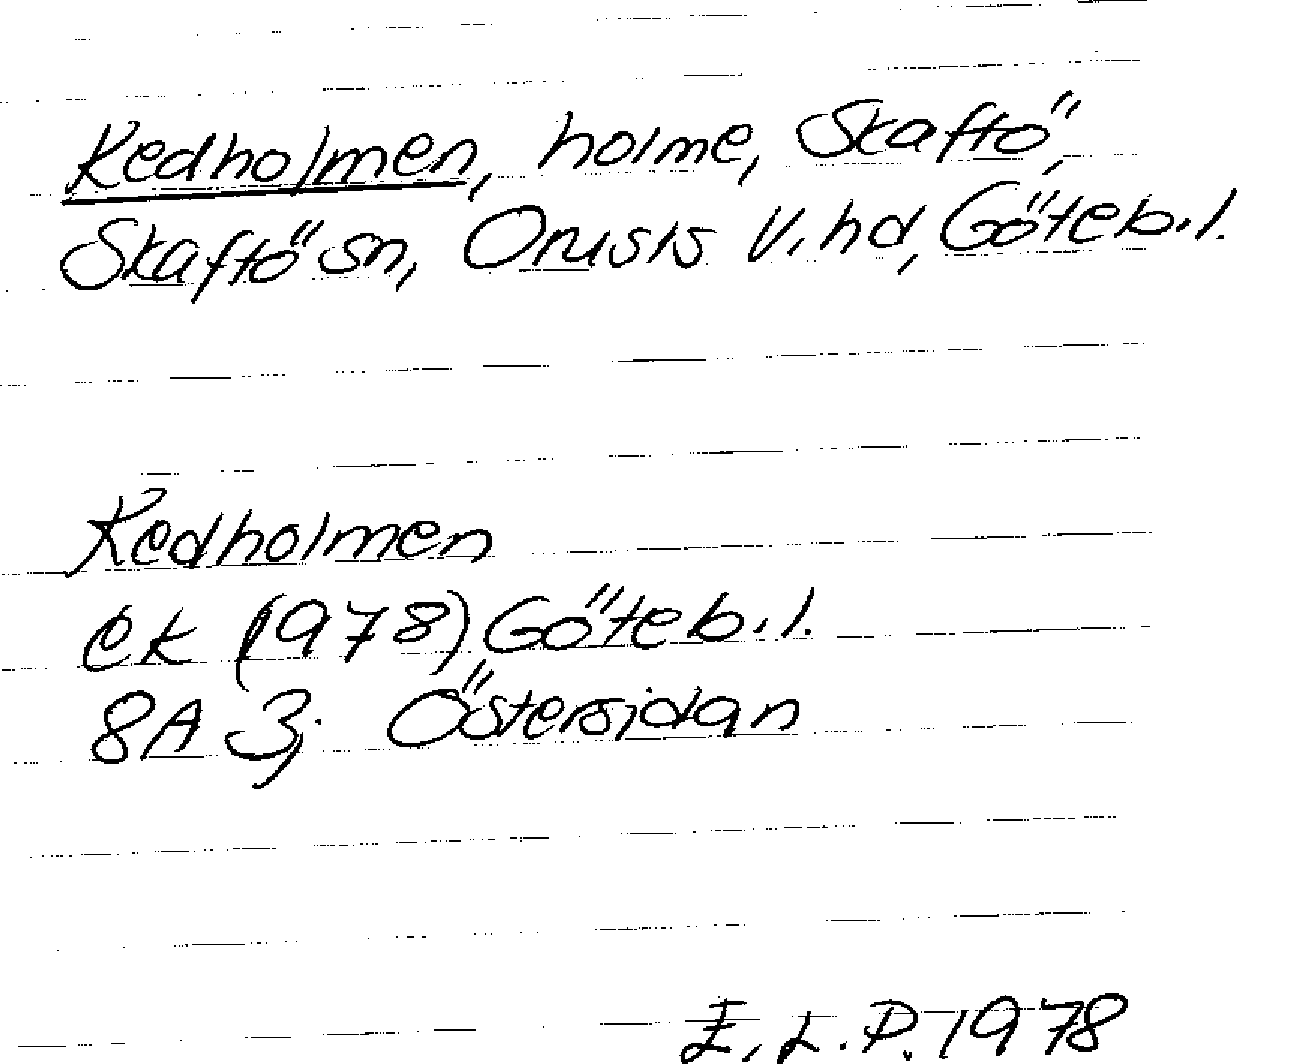 Kedholmen, holme, Skaftö,
Skaftö sn, Orusts V. hd, Göteb. l.
Kedholmen
ek (1978) Göteb. l.
8A 3; Östersidan
E. L. P. 1978